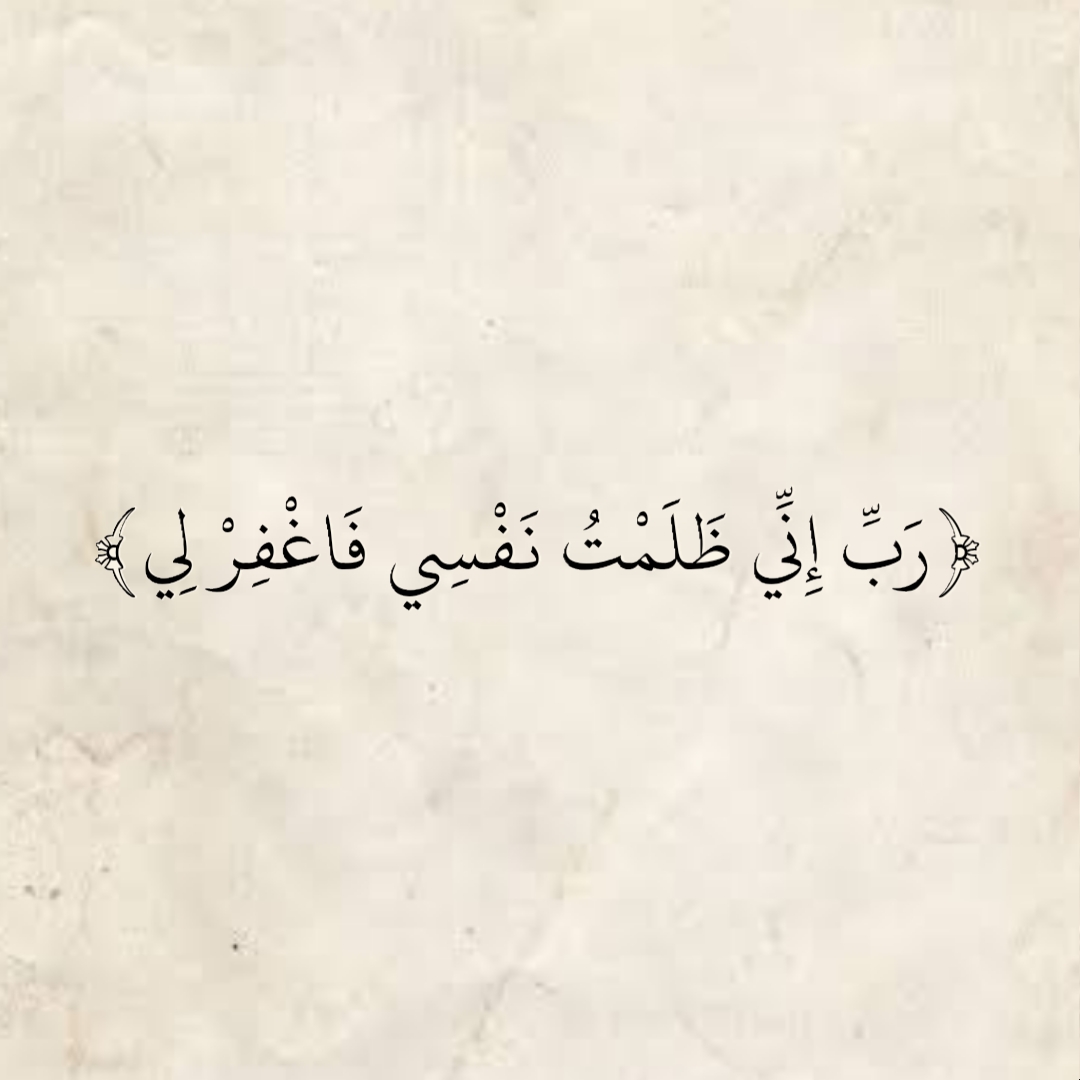 ﴿رَبِّ إِنِّي ظَلَمْتُ نَفْسِي فَاغْفِرْ لِي﴾